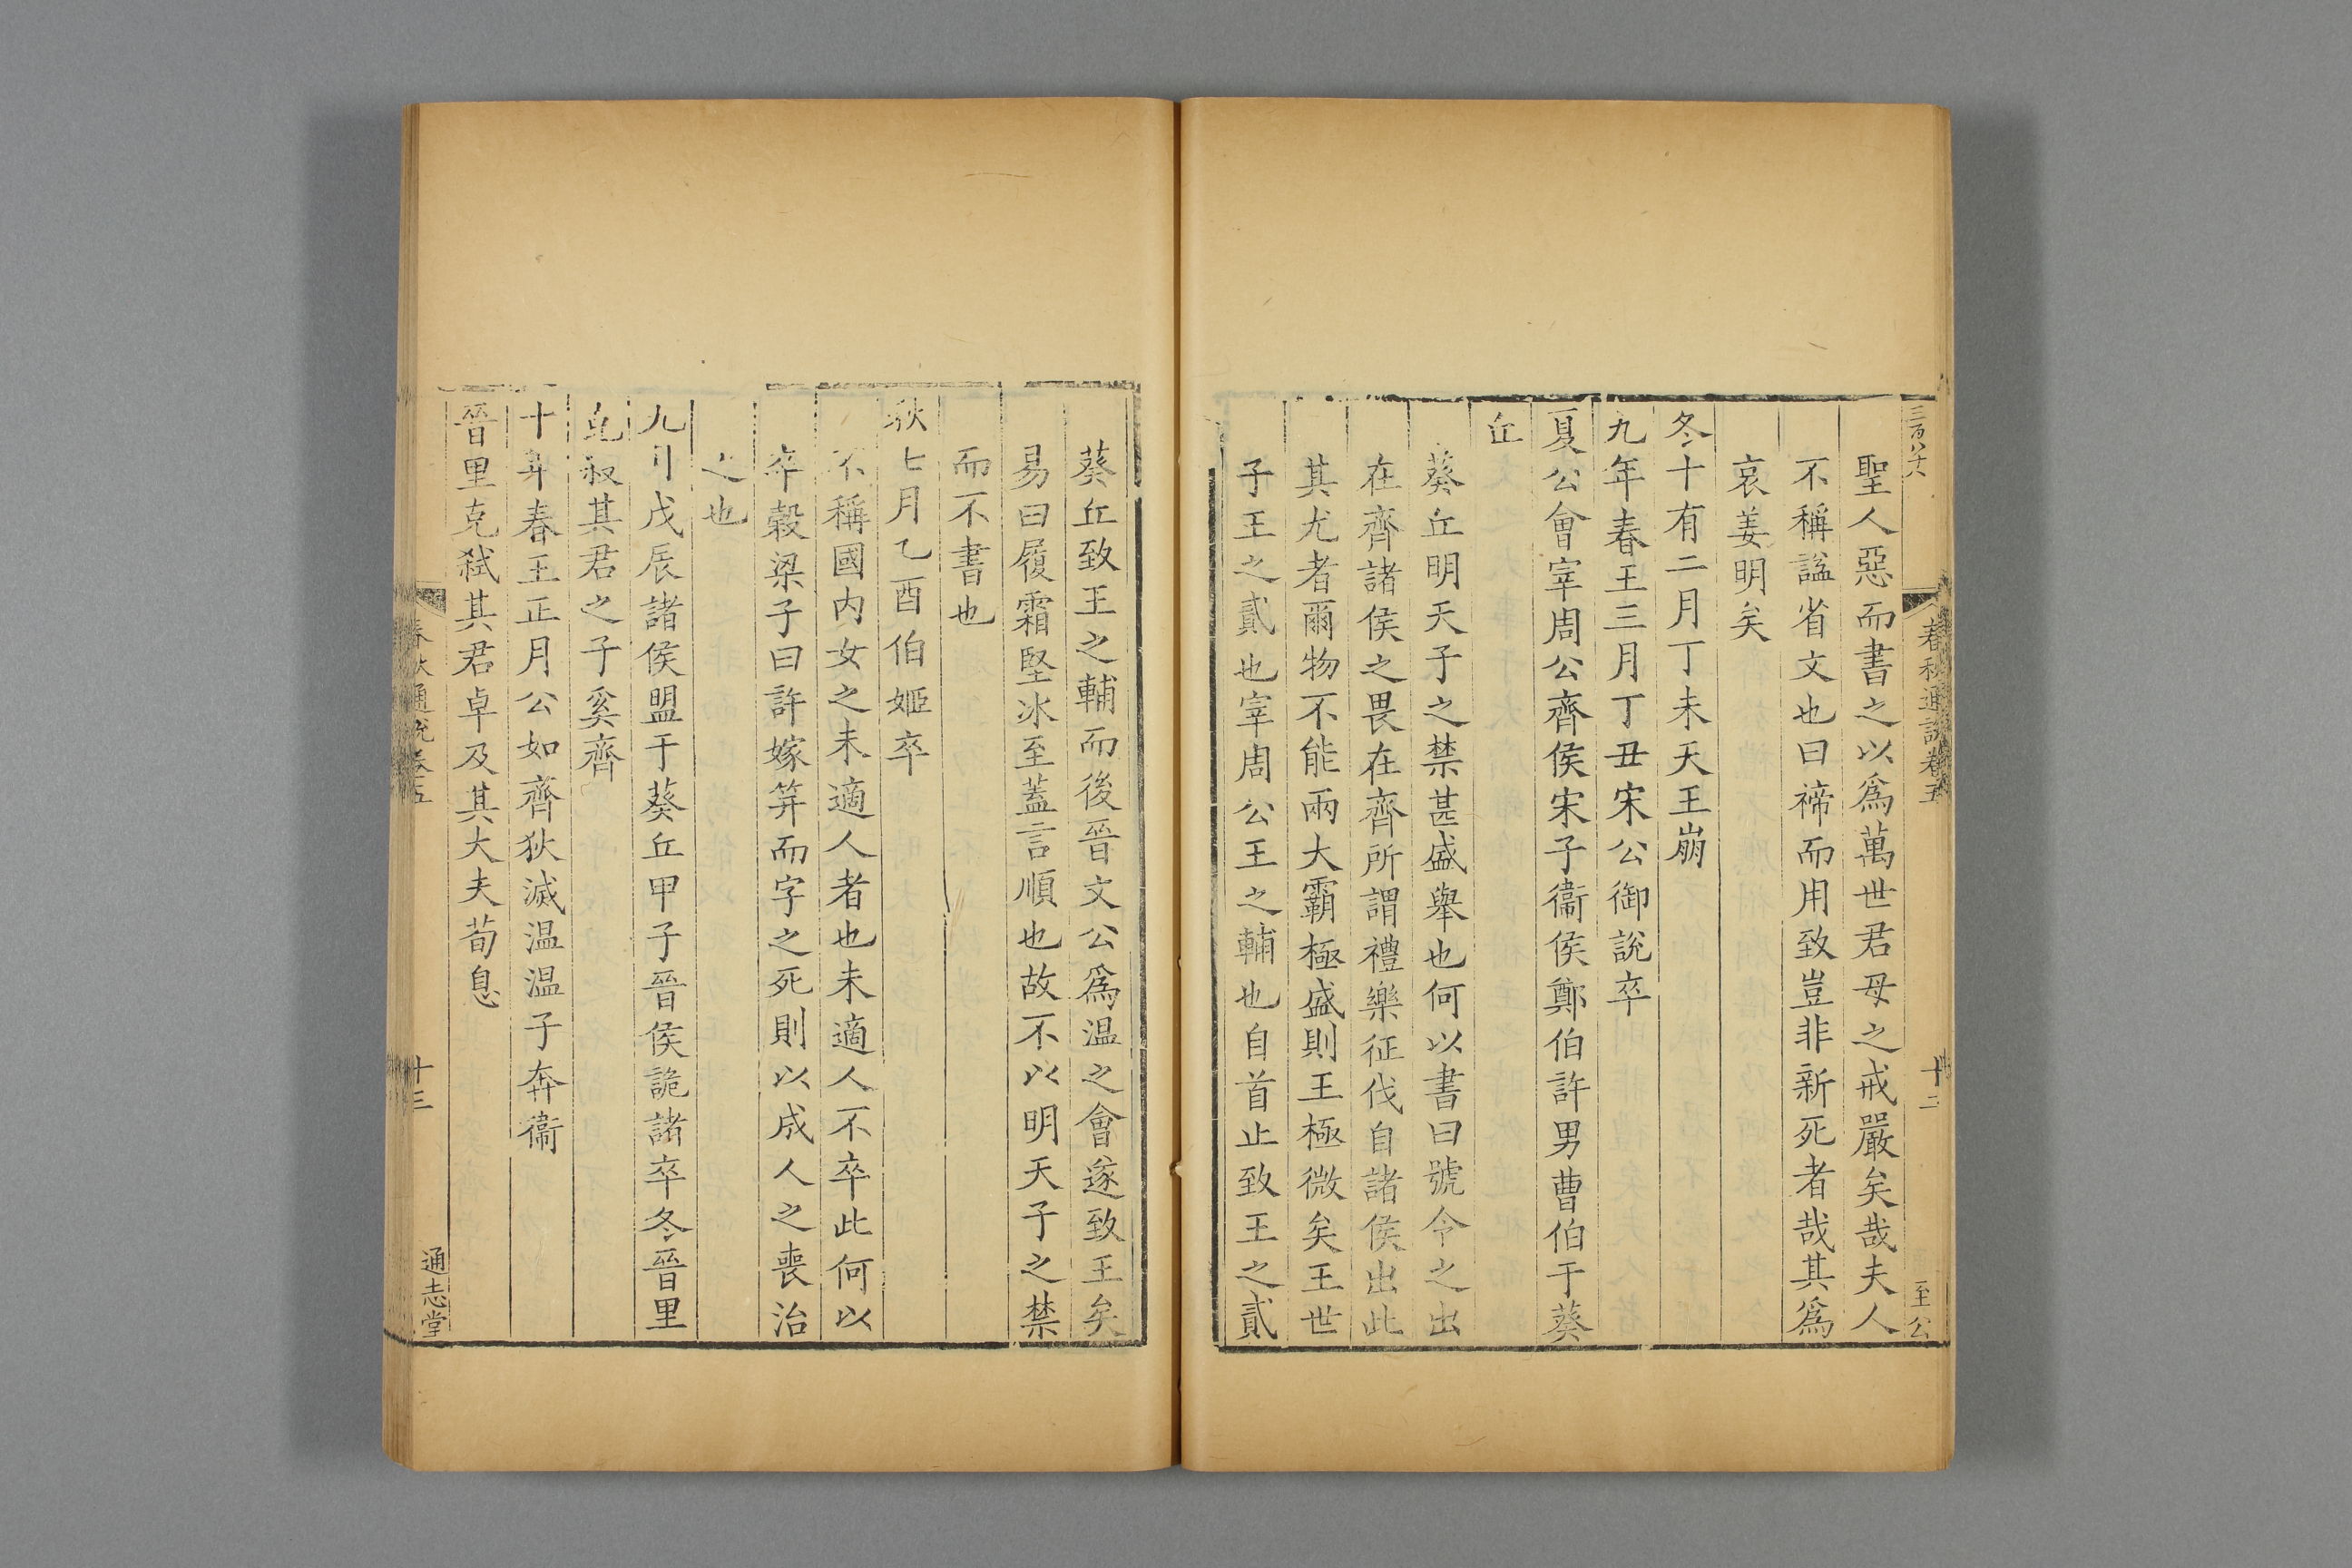 三百八十八
春秋通說卷五
十二
至公
聖人惡而書之以爲萬世君母之戒嚴矣哉夫人
不稱諡省文也曰禘而用致豈非新死者哉其爲
哀姜明矣
冬十有二月丁未天王崩
九年春王三月丁丑宋公御說卒
夏公會宰周公齊侯宋子衞侯鄭伯許男曹伯于葵
丘
葵丘明天子之禁甚盛舉也何以書曰號令之出
在齊諸侯之畏在齊所謂禮樂征伐自諸侯出此
其尤者爾物不能兩大霸極盛則王極微矣王世
子王之貳也宰周公王之輔也自首止致王之貳
葵丘致王之輔而後晉文公爲温之會遂致王矣
易曰履霜堅冰至蓋言順也故不以明天子之禁
而不書也
秋七月乙酉伯姬卒
不稱國内女之未適人者也未適人不卒此何以
卒榖梁子曰許嫁笄而字之死則以成人之喪治
之也
九月戊辰諸侯盟于葵丘甲子晉侯詭諸卒冬晉里
克殺其君之子奚齊
十年春王正月公如齊狄滅温温子奔衞
晉里克弑其君卓及其大夫荀息
春秋通說卷五
十三
通志堂